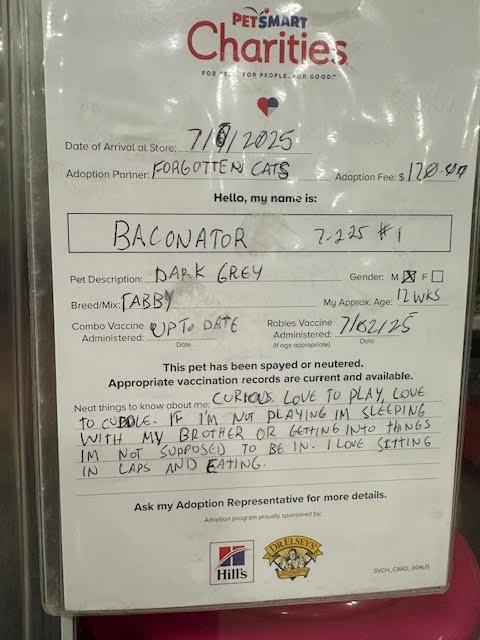 PETSMART
Charities
FOR PETS. FOR PEOPLE. FOR GOOD.™
Date of Arrival at Store: 7/9/2025
Adoption Partner: FORGOTTEN CATS Adoption Fee: $ 120.00
Hello, my name is:
BACONATOR 7-225 #1
Pet Description: DARK GREY Gender: M ☒ F ☐
Breed/Mix: TABBY My Approx. Age: 12 WKS
Combo Vaccine Administered: UP TO DATE Rabies Vaccine Administered: 7/02/25
Date (if age appropriate) Date
This pet has been spayed or neutered.
Appropriate vaccination records are current and available.
Neat things to know about me: CURIOUS, LOVE TO PLAY, LOVE
TO CUDDLE. IF I'M NOT PLAYING IM SLEEPING
WITH MY BROTHER OR GETTING INTO THINGS
IM NOT SUPPOSED TO BE IN. I LOVE SITTING
IN LAPS AND EATING.
Ask my Adoption Representative for more details.
Adoption program proudly sponsored by:
Hill's DR. ELSEY'S
SVCH_CARD_004US